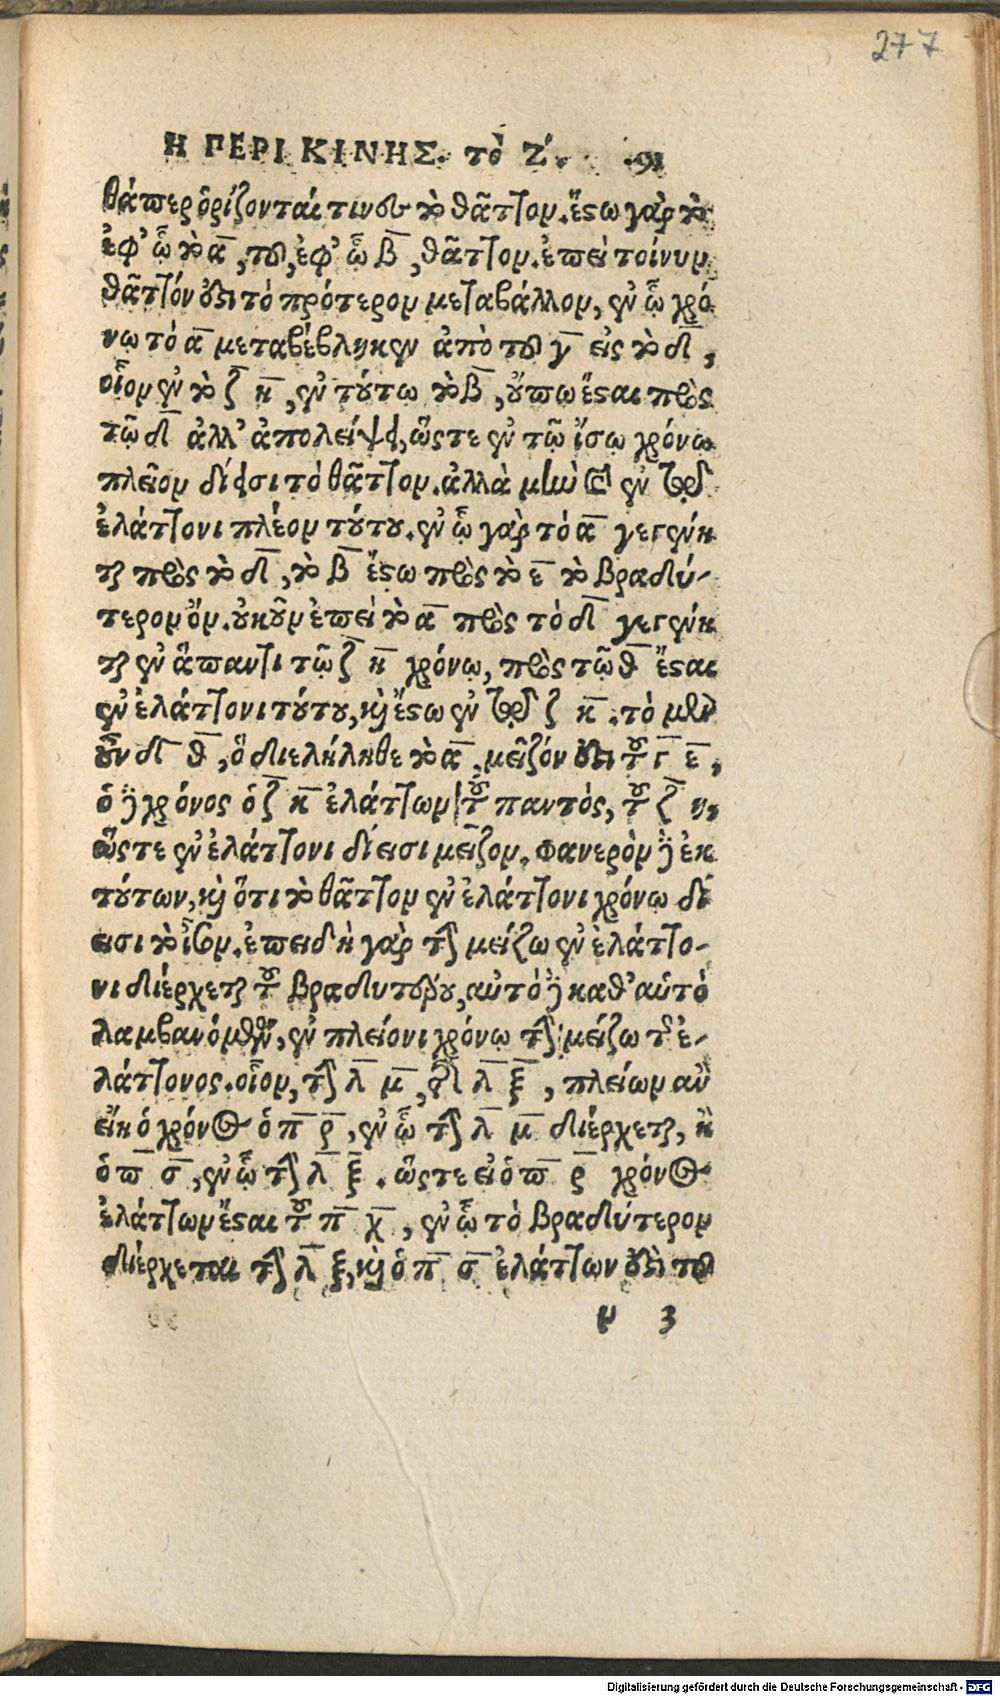 277
Η ΠΕΡΙ ΚΙΝΗΣ. τὸ Ζ´. 91
θάπερ ὁρίζονταί τινες τὸ θᾶττον. ἔστω γὰρ τὸ
ἐφ' ᾧ τὸ α̅, τοῦ, ἐφ' ᾧ β̅, θᾶττον. ἐπεὶ τοίνυν
θᾶττόν ἐστι τὸ πρότερον μεταβάλλον, ἐν ᾧ χρό
νῳ τὸ α̅ μεταβέβληκεν ἀπὸ τοῦ γ̅ εἰς τὸ δ̅,
οἷον ἐν τὸ ζ̅ κ̅, ἐν τούτῳ τὸ β̅, οὔπω ἔσται πρὸς
τῷ δ̅ ἀλλ' ἀπολείψει, ὥστε ἐν τῷ ἴσῳ χρόνῳ
πλεῖον δίεισι τὸ θᾶττον. ἀλλὰ μὴν καὶ ἐν τῷ
ἐλάττονι πλέον τούτου. ἐν ᾧ γὰρ τὸ α̅ γεγένη
ται πρὸς τὸ δ̅, τὸ β̅ ἔστω πρὸς τὸ ε̅ τὸ βραδύ-
τερον ὄν. οὐκοῦν ἐπεὶ τὸ α̅ πρὸς τὸ δ̅ γεγένη
ται ἐν ἅπαντι τῷ ζ̅ κ̅ χρόνῳ, πρὸς τῷ θ̅ ἔσται
ἐν ἐλάττονι τούτου, καὶ ἔστω ἐν τῷ ζ κ̅. τὸ μὲν
οὖν δ̅ θ̅, ὃ διελήλυθε τὸ α̅, μεῖζόν ἐστι τοῦ γ̅ ε̅,
ὁ δὲ χρόνος ὁ ζ̅ κ̅ ἐλάττων τοῦ παντὸς, τοῦ ζ̅ η,
ὥστε ἐν ἐλάττονι δίεισι μεῖζον. φανερὸν δὲ ἐκ
τούτων, καὶ ὅτι τὸ θᾶττον ἐν ἐλάττονι χρόνῳ δί
εισι τὸ ἴσον. ἐπειδὴ γὰρ τὴν μείζω ἐν ἐλάττο-
νι διέρχεται τοῦ βραδυτέρου, αὐτὸ δὲ καθ' αὑτὸ
λαμβανόμενον, ἐν πλείονι χρόνῳ τὴν μείζω τῆς ἐ-
λάττονος. οἷον, τὴν λ̅ μ̅, τῆς λ̅ ξ̅, πλείων ἂν
εἴη ὁ χρόνος ὁ π̅ ρ̅, ἐν ᾧ τὴν λ̅ μ̅ διέρχεται, ἢ
ὁ π̅ σ̅, ἐν ᾧ τὴν λ̅ ξ̅. ὥστε εἰ ὁ π̅ ρ̅ χρόνος
ἐλάττων ἔσται τοῦ π̅ χ̅, ἐν ᾧ τὸ βραδύτερον
διέρχεται τὴν λ̅ ξ, καὶ ὁ π̅ σ̅ ἐλάττων ἐστὶ τοῦ
μ 3
Digitalisierung gefördert durch die Deutsche Forschungsgemeinschaft - DFG